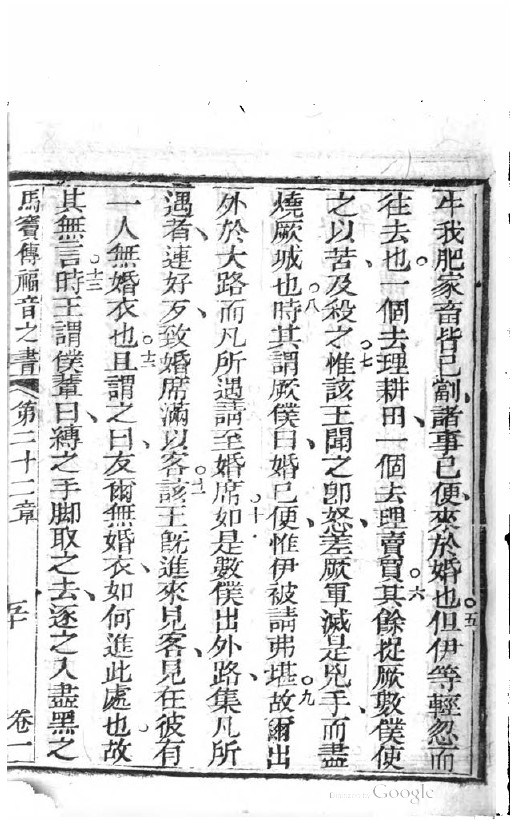 牛我肥家畜皆已劏、諸事已便、來於婚也○五但伊等輕忽而
往去也、一個去理耕田、一個去理賣買○六其餘捉厥數僕使
之以苦、及殺之○七惟該王聞之卽怒、差厥軍滅是兇手、而盡
燒厥城也○八時其謂厥僕曰、婚已便、惟伊被請弗堪○九故爾出
外於大路、而凡所遇請至婚席○十如是數僕出外路、集凡所
遇者連好歹、致婚席滿以客○十一該王旣進來見客、見在彼有
一人無婚衣也○十二且謂之曰、友爾無婚衣、如何進此處也、故
其無言○十三時王謂僕輩曰、縛之手脚、取之去、逐之入盡黑之
馬竇傳福音之書 第二十二章 五十 卷一
Google